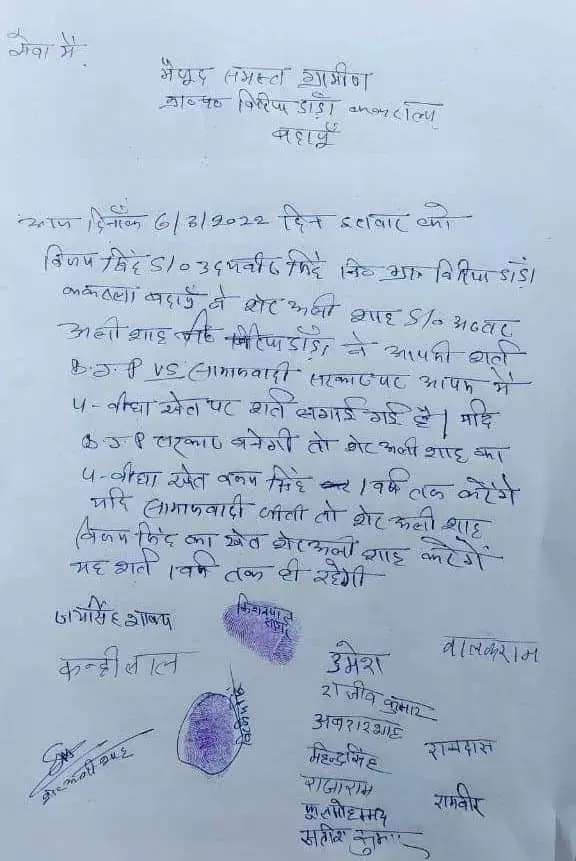 सेवा में,
मौजूद समस्त ग्रामीण
ग्राम व पो० विरियाडॉंडा ककराला
बदायूँ
आज दिनाँक 6/3/2022 दिन इतवार को
विजय सिंह S/o उदयवीर सिंह नि० ग्राम विरियाडांडा
ककराला बदायूँ ने शेर अली शाह S/o अख्तर
अली शाह नि० विरियाडॉंडा ने आपकी शर्त
B.J.P VS सामाजवादी सरकार पर आपस में
4-बीघा खेत पर शर्त लगाई गई है। यदि
B.J.P सरकार बनेगी तो शेर अली शाह का
4-बीघा खेत विजय सिंह 1 वर्ष तक करेंगे
यदि सामाजवादी जीती तो शेर अली शाह
विजय सिंह का खेत शेर अली शाह करेंगें
यह शर्त 1 वर्ष तक ही रहेगी
जयसिंह शाक्य
किशनपाल
कन्हीलाल
उमेश
वालकराम
राजीव कुमार
अबरार शाह
महेन्द्रसिंह
रामदास
राजाराम
रामवीर
सतीश कुमार
शेर अली शाह